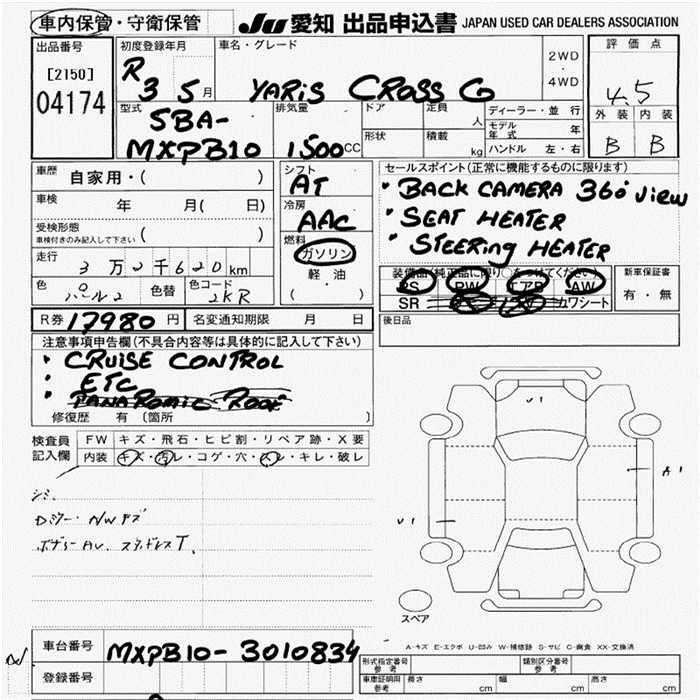 車内保管・守衛保管
JU 愛知 出品申込書 JAPAN USED CAR DEALERS ASSOCIATION
出品番号
[2150]
04174
初度登録年月
R 3 5 月
車名・グレード
YARIS CROSS G
2WD
・
4WD
評価点
4.5
外装 内装
B B
型式
5BA-
MXPB10
排気量
1500CC
ドア
形状
定員
人
積載
kg
ディーラー・並行
モデル年式 年
ハンドル 左・右
車歴 自家用・( )
車検 年 月( 日)
受検形態
車検付きのみ記入して下さい ( )
走行 3万2千620km
色 パール2 色替 色コード 2KR
シフト
AT
冷房
AAC
燃料
ガソリン
軽油
( )
セールスポイント(正常に機能するものに限ります)
・BACK CAMERA 360° View
・SEAT HEATER
・STEERING HEATER
装備品(純正品に限り○をつけてください)
PS PW エアB AW
SR カワシート
新車保証書
有・無
R券 17980 円 名変通知期限 月 日
後日品
注意事項申告欄(不具合内容等は具体的に記入して下さい)
・CRUISE CONTROL
・ETC
・PANAROMIC ROOF
修復歴 有 〔箇所 〕
検査員記入欄
FW キズ・飛石・ヒビ割・リペア跡・X要
内装 キズ・汚レ・コゲ・穴・スレ・キレ・破レ
シミ.
U1
A1
U1
スペア
A-キズ E-エクボ U-凹み W-補修跡 S-サビ C-腐食 XX-交換済
車台番号 MXPB10-3010834
登録番号
形式指定番号
参考
類別区分番号
参考
車庫証明用
参考
長さ cm 幅 cm 高さ cm